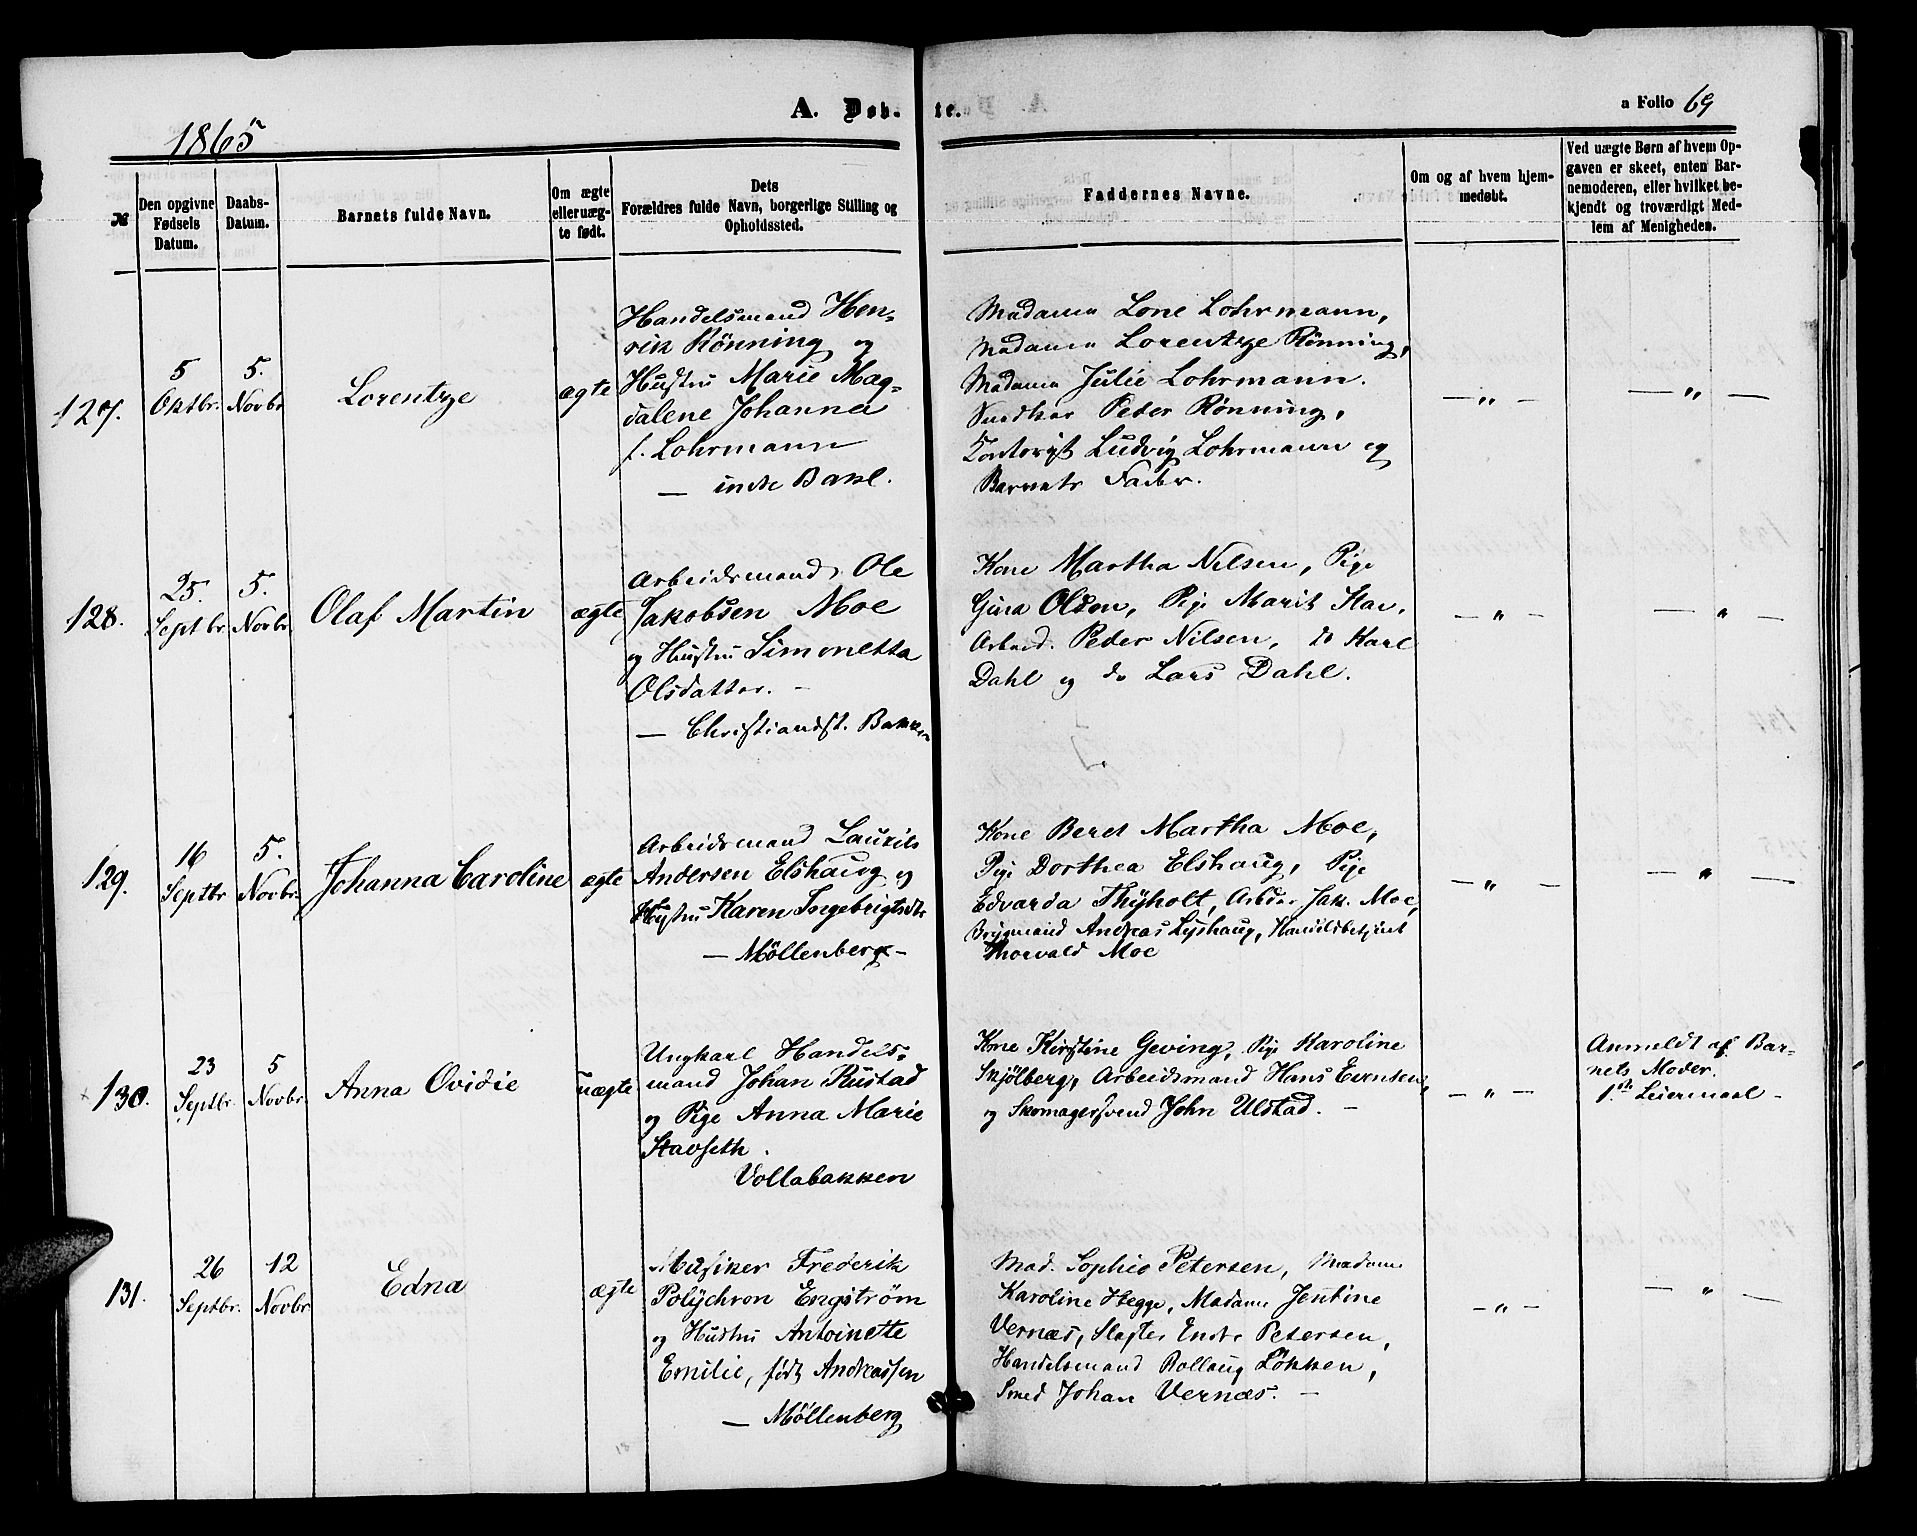 1865
A. Døb- te.
a Folio 69
№
Den opgivne Fødsels Datum.
Daabs-Datum.
Barnets fulde Navn.
Om ægte eller uægte født.
Dets
Forældres fulde Navn, borgerlige Stilling og
Opholdssted.
Faddernes Navne.
Om og af hvem hjem-
medøbt.
Ved uægte Børn af hvem Op-
gaven er skeet, enten Bar-
nemoderen, eller hvilket be-
kjendt og troværdigt Med-
lem af Menigheden.
127.
5 Oktbr.
5. Novbr
Lorentze
ægte
Handelsmand Hen-
rik Rönning og
Hustru Marie Mag-
dalene Johanna
f. Lohrmann
— indre Bakl.
Madame Lone Lohrmann,
Madame Lorentze Rönning,
Madame Julie Lohrmann.
Snedker Peter Rönning,
Contorist Ludvig Lohrmann og
Barnets Fader.
— „ —
— „ —
128.
25. Septbr.
5. Novbr.
Olaf Martin
ægte
Arbeidsmand Ole
Jakobsen Moe
og Hustru Simonetta
Olsdatter. —
— Christiandst. Bakken
Kone Martha Nilsen, Pige
Gina Olsen, Pige Marit Stav,
Arbeid. Peder Nilsen, do Karl
Dahl og do Lars Dahl.
— „ —
— „ —
129.
16 Septbr
5. Novbr.
Johanna Caroline
ægte
Arbeidsmand Laurits
Andersen Elshaug og
Hustru Karen Ingebrigtsdtr
— Möllenberg —
Kone Beret Martha Moe,
Pige Dorthea Elshaug, Pige
Edvarda Thyholt, Arbdsr Jak. Moe,
Brygmand Andreas Lyshaug, Handelsbetjent
Thorvald Moe
— „ —
— „ —
130.
23 Septbr.
5 Novbr.
Anna Ovidie
uægte
Ungkarl Handels-
mand Johan Rustad
og Pige Anna Marie
Stavseth.
Vollabakken
Kone Kirstine Geving, Pige Karoline
Skjölberg, Arbeidsmand Hans Evensen,
og Skomagersvend John Ulstad. —
— „ —
Anmeldt af Bar-
nets Moder.
1ste Leiermaal —
131.
26 Septbr.
12 Novbr
Edna
ægte
Musiker Frederik
Polychron Engström
og Hustru Antoinette
Emilie, født Andreassen
— Möllenberg
Mad. Sophie Petersen, Madame
Karoline Hegge, Madame Jentine
Vernæs, Slagter Endre Petersen,
Handelsmand Rollaug Lökken,
Smed Johan Vernæs. —
— „ —
— „ —